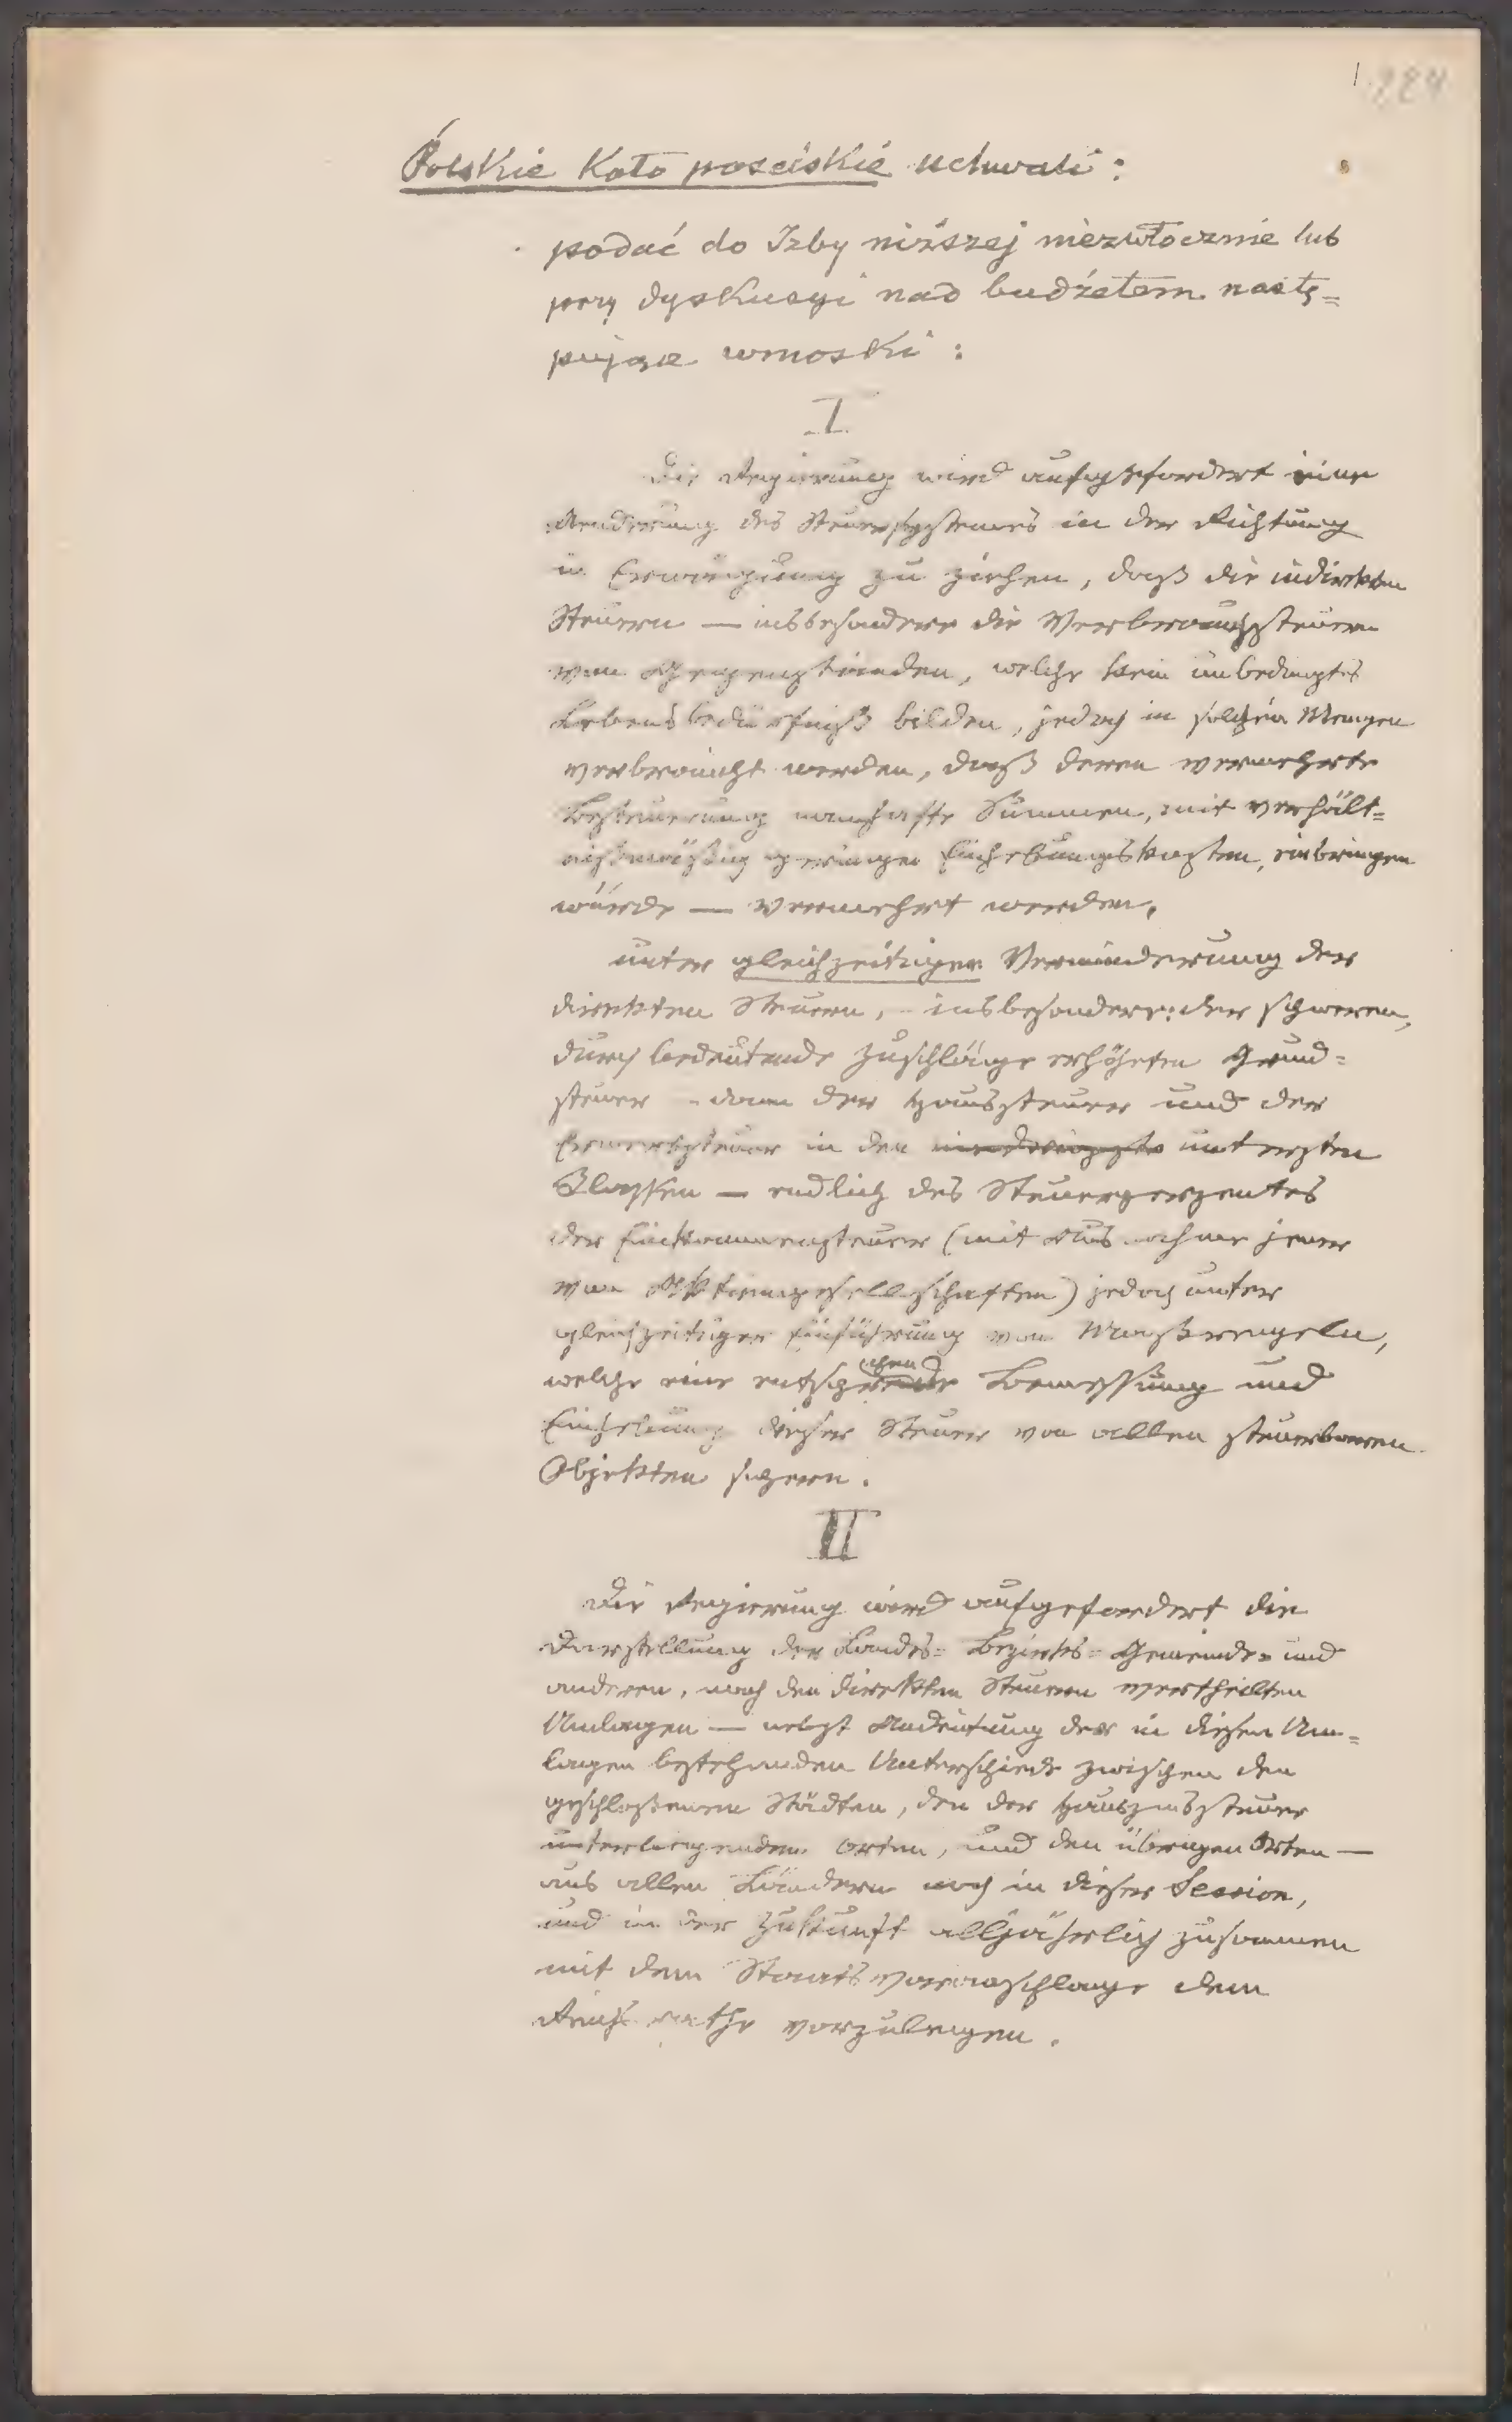 224
Polskie Koło poselskie uchwali:
podać do Izby niższej niezwłocznie lub
przy dyskusyi nad budżetem nastę=
pujące wnioski:
I
Die Regierung wird aufgefordert eine
Aenderung des Steuersystemes in der Richtung
in Erwägung zu ziehen, daß die indirekten
Steuern — insbesondere die Verbrauchssteuern
von Gegenständen, welche kein unbedingtes
Lebensbedürfniß bilden, jedoch in solchen Mengen
verbraucht werden, daß deren vermehrte
Besteuerung namhafte Summen, mit verhält=
nißmäßig geringen Einhebungskosten, einbringen
würde — vermehrt werden,
unter gleichzeitiger Verminderung der
direkten Steuern, – insbesondere: der schweren,
durch bedeutende Zuschläge erhöhten Grund=
steuer – dann der Haussteuer und der
Erwerbsteuer in den untersten
Klassen — endlich des Steuerperzentes
der Einkommensteuer (mit Ausnahme jener
von Aktiengesellschaften) jedoch unter
gleichzeitiger Einführung von Maßregeln,
welche eine Bemessung und
Einhebung dieser Steuer von allen steuerbaren
Objekten sichern.
II
Die Regierung wird aufgefordert die
Darstellung der Landes= Bezirks= Gemeinde= und
anderen, nach den direkten Steuern vertheilten
Umlagen — nebst Andeutung der in diesen Um=
lagen bestehenden Unterschiede zwischen den
geschloßenen Städten, den der Hauszinssteuer
unterliegenden Orten, und den übrigen Orten —
aus allen Ländern noch in dieser Session,
und in der Zukunft alljährlich zusammen
mit dem Staatsvoranschlage dem
Reichsrathe vorzulegen.